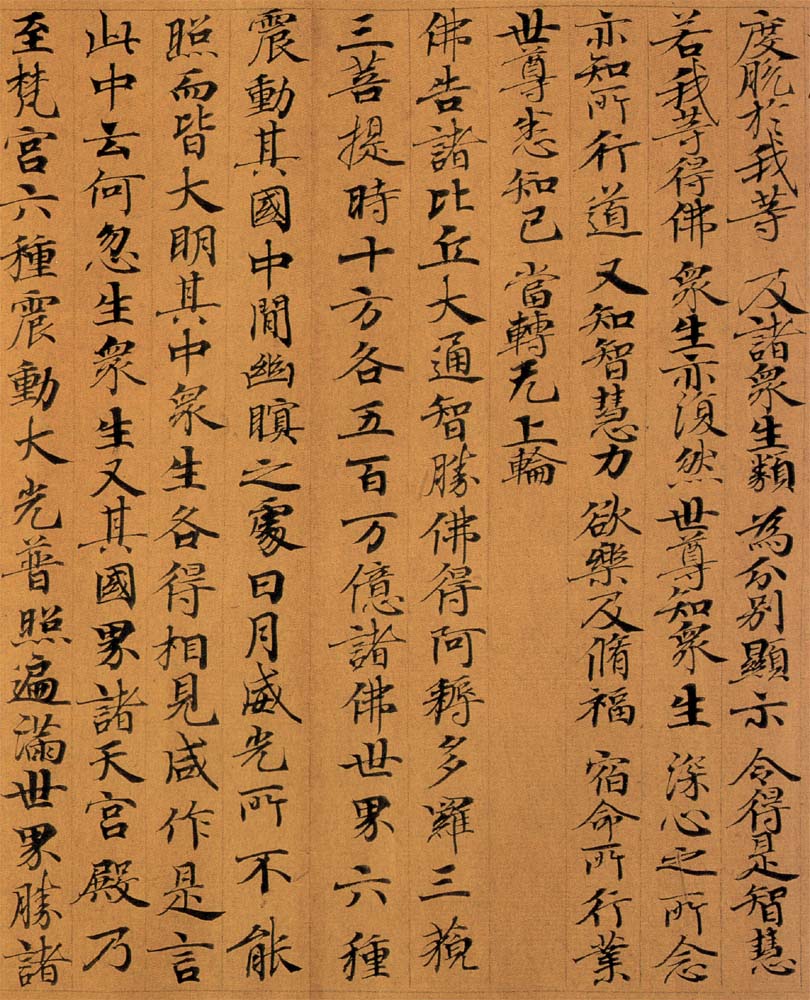 度脫於我等 及諸衆生類 為分別顯示 令得是智慧
若我等得佛 衆生亦復然 世尊知衆生 深心之所念
亦知所行道 又知智慧力 欲樂及脩福 宿命所行業
世尊悉知已 當轉无上輪
佛告諸比丘大通智勝佛得阿耨多羅三藐
三菩提時十方各五百万億諸佛世界六種
震動其國中間幽瞑之處日月威光所不能
照而皆大明其中衆生各得相見咸作是言
此中云何忽生衆生又其國界諸天宮殿乃
至梵宮六種震動大光普照遍滿世界勝諸